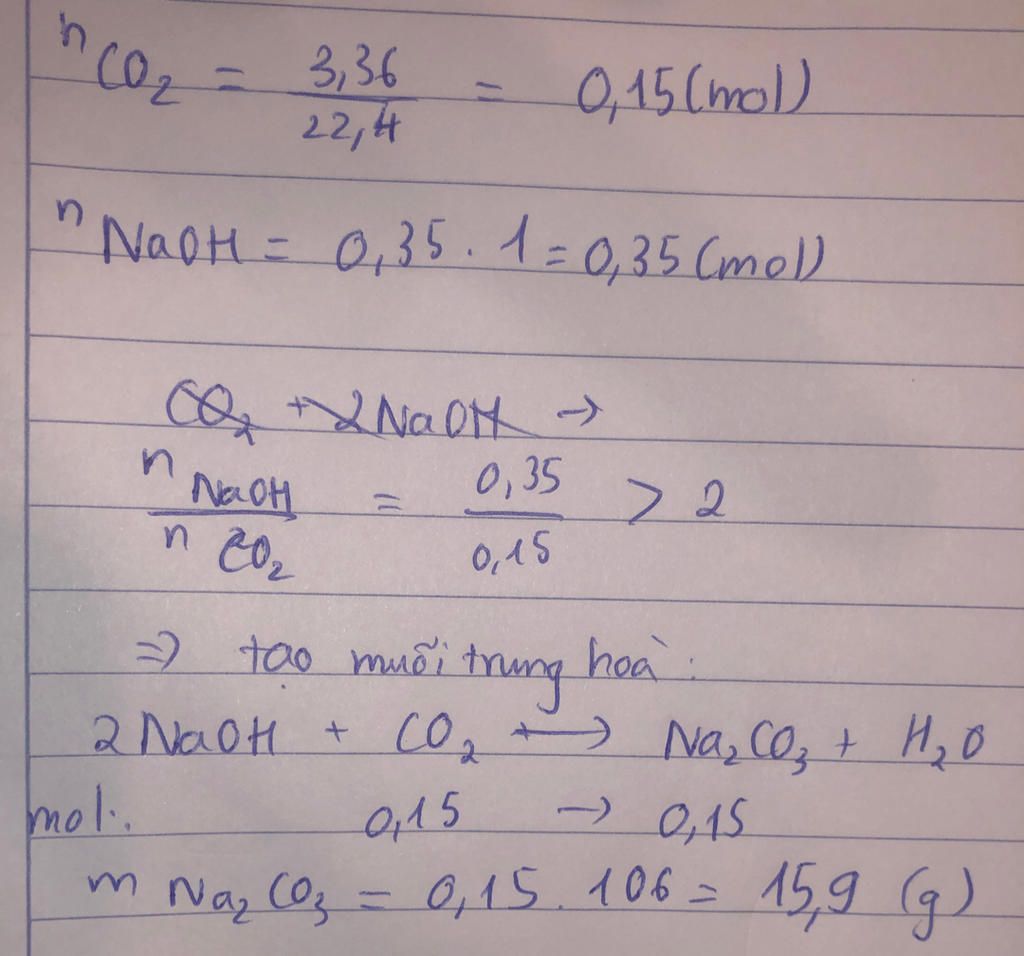 nCO₂ = 3,36/22,4 = 0,15 (mol)
nNaOH = 0,35 . 1 = 0,35 (mol)
CO₂ + 2NaOH →
nNaOH/nCO₂ = 0,35/0,15 > 2
⇒ tạo muối trung hoà:
2NaOH + CO₂ → Na₂CO₃ + H₂O
mol: 0,15 → 0,15
m Na₂CO₃ = 0,15 . 106 = 15,9 (g)